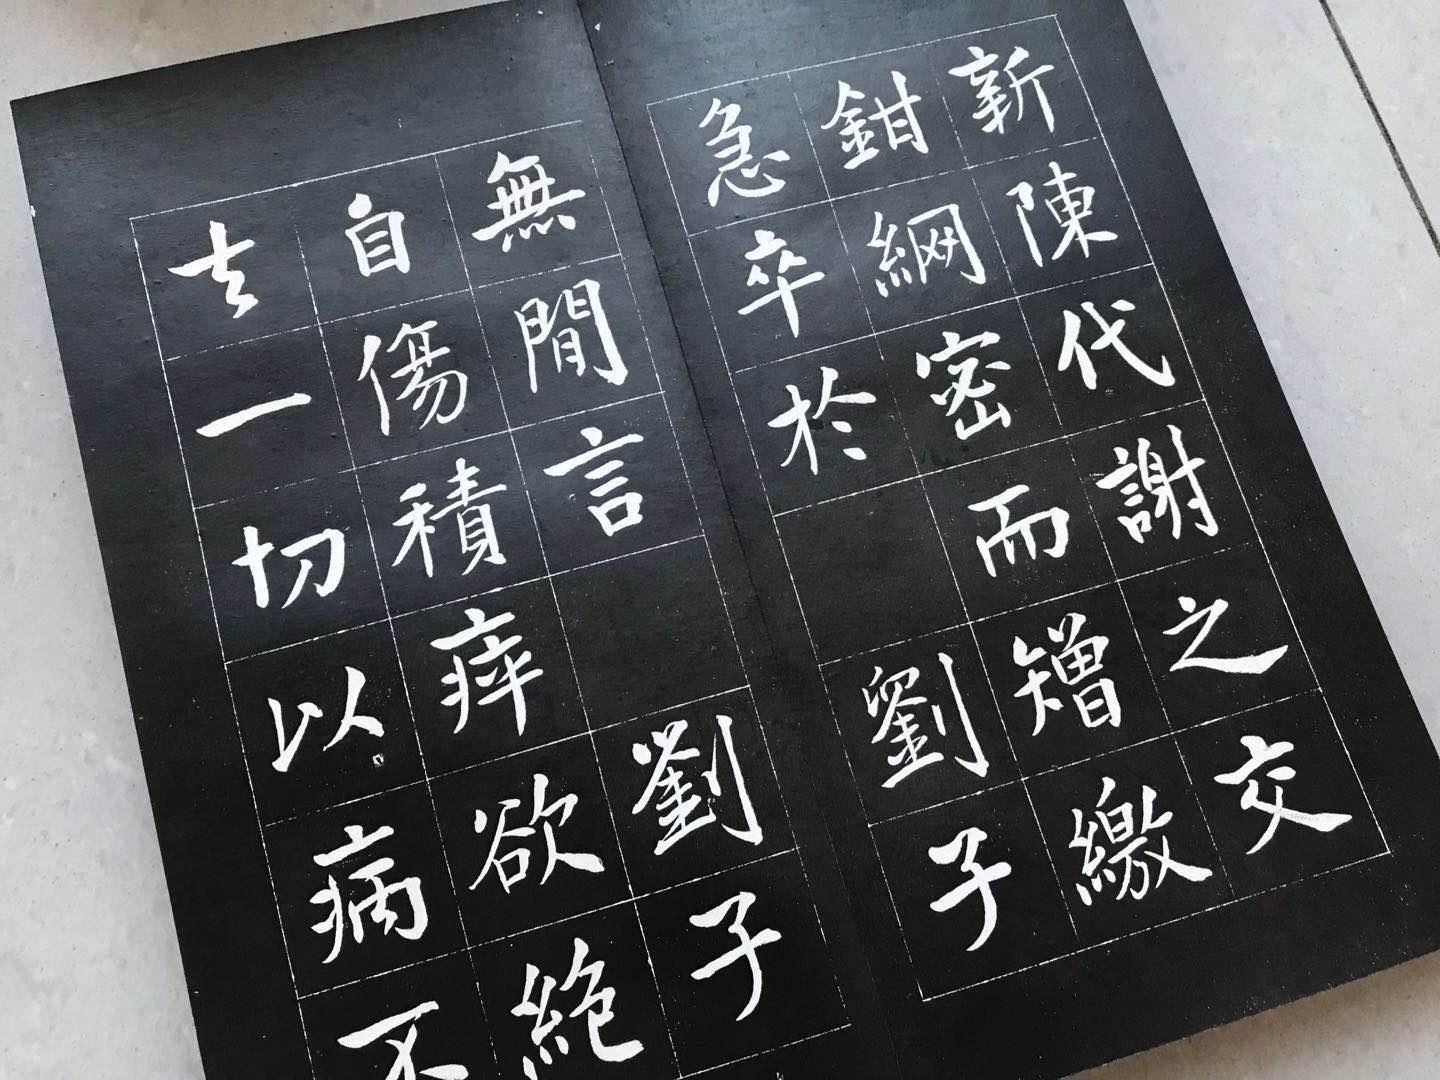 新陳代謝之交
鉗網密而矰繳
急卒於 劉子
無間言 劉子
自傷積瘁欲絶
去一切以病不